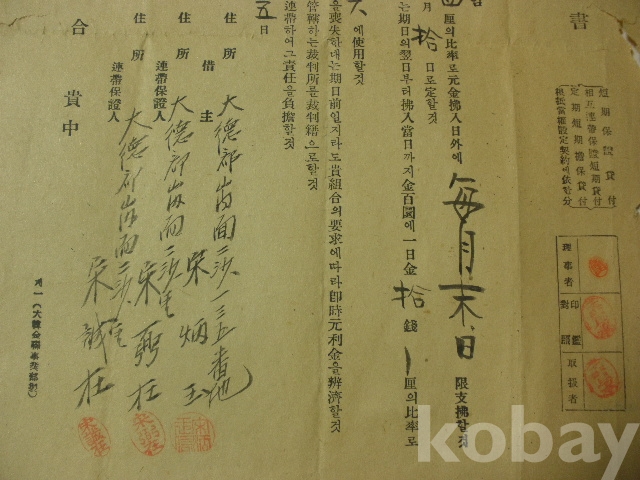 書
短期保證貸付
相互連帶保證短期貸付
定期短期擔保貸付
根抵當權設定契約에依한分
理事者
印鑑
對照
取扱者
厘의比率로元金拂入日外에 每月末日 限支拂할것
月 拾 日로定할것
는期日의翌日부터拂入當日까지金百圜에一日金 拾 錢 厘의比率로
에使用할것
을喪失한때는期日前일지라도貴組合의要求에따라卽時元利金을辨濟할것
管轄하는裁判所를裁判籍으로할것
連帶하여그責任을負擔할것
五 日
住所 大德郡 面二沙
借主 宋炳玉
住所 大德郡 面二沙
連帶保證人 宋弼在
住所 大德郡 面二沙
連帶保證人 宋誠在
合 貴中
kobay